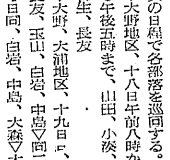 の日程で各部落を巡回する。
大野地区、十八日午前八時か
午後五時まで、山田、小湊、
生、長友
大野、大浦地区、十九日、
友、玉山、白岩、中島▽同二
日同、白岩、中島、大森▽